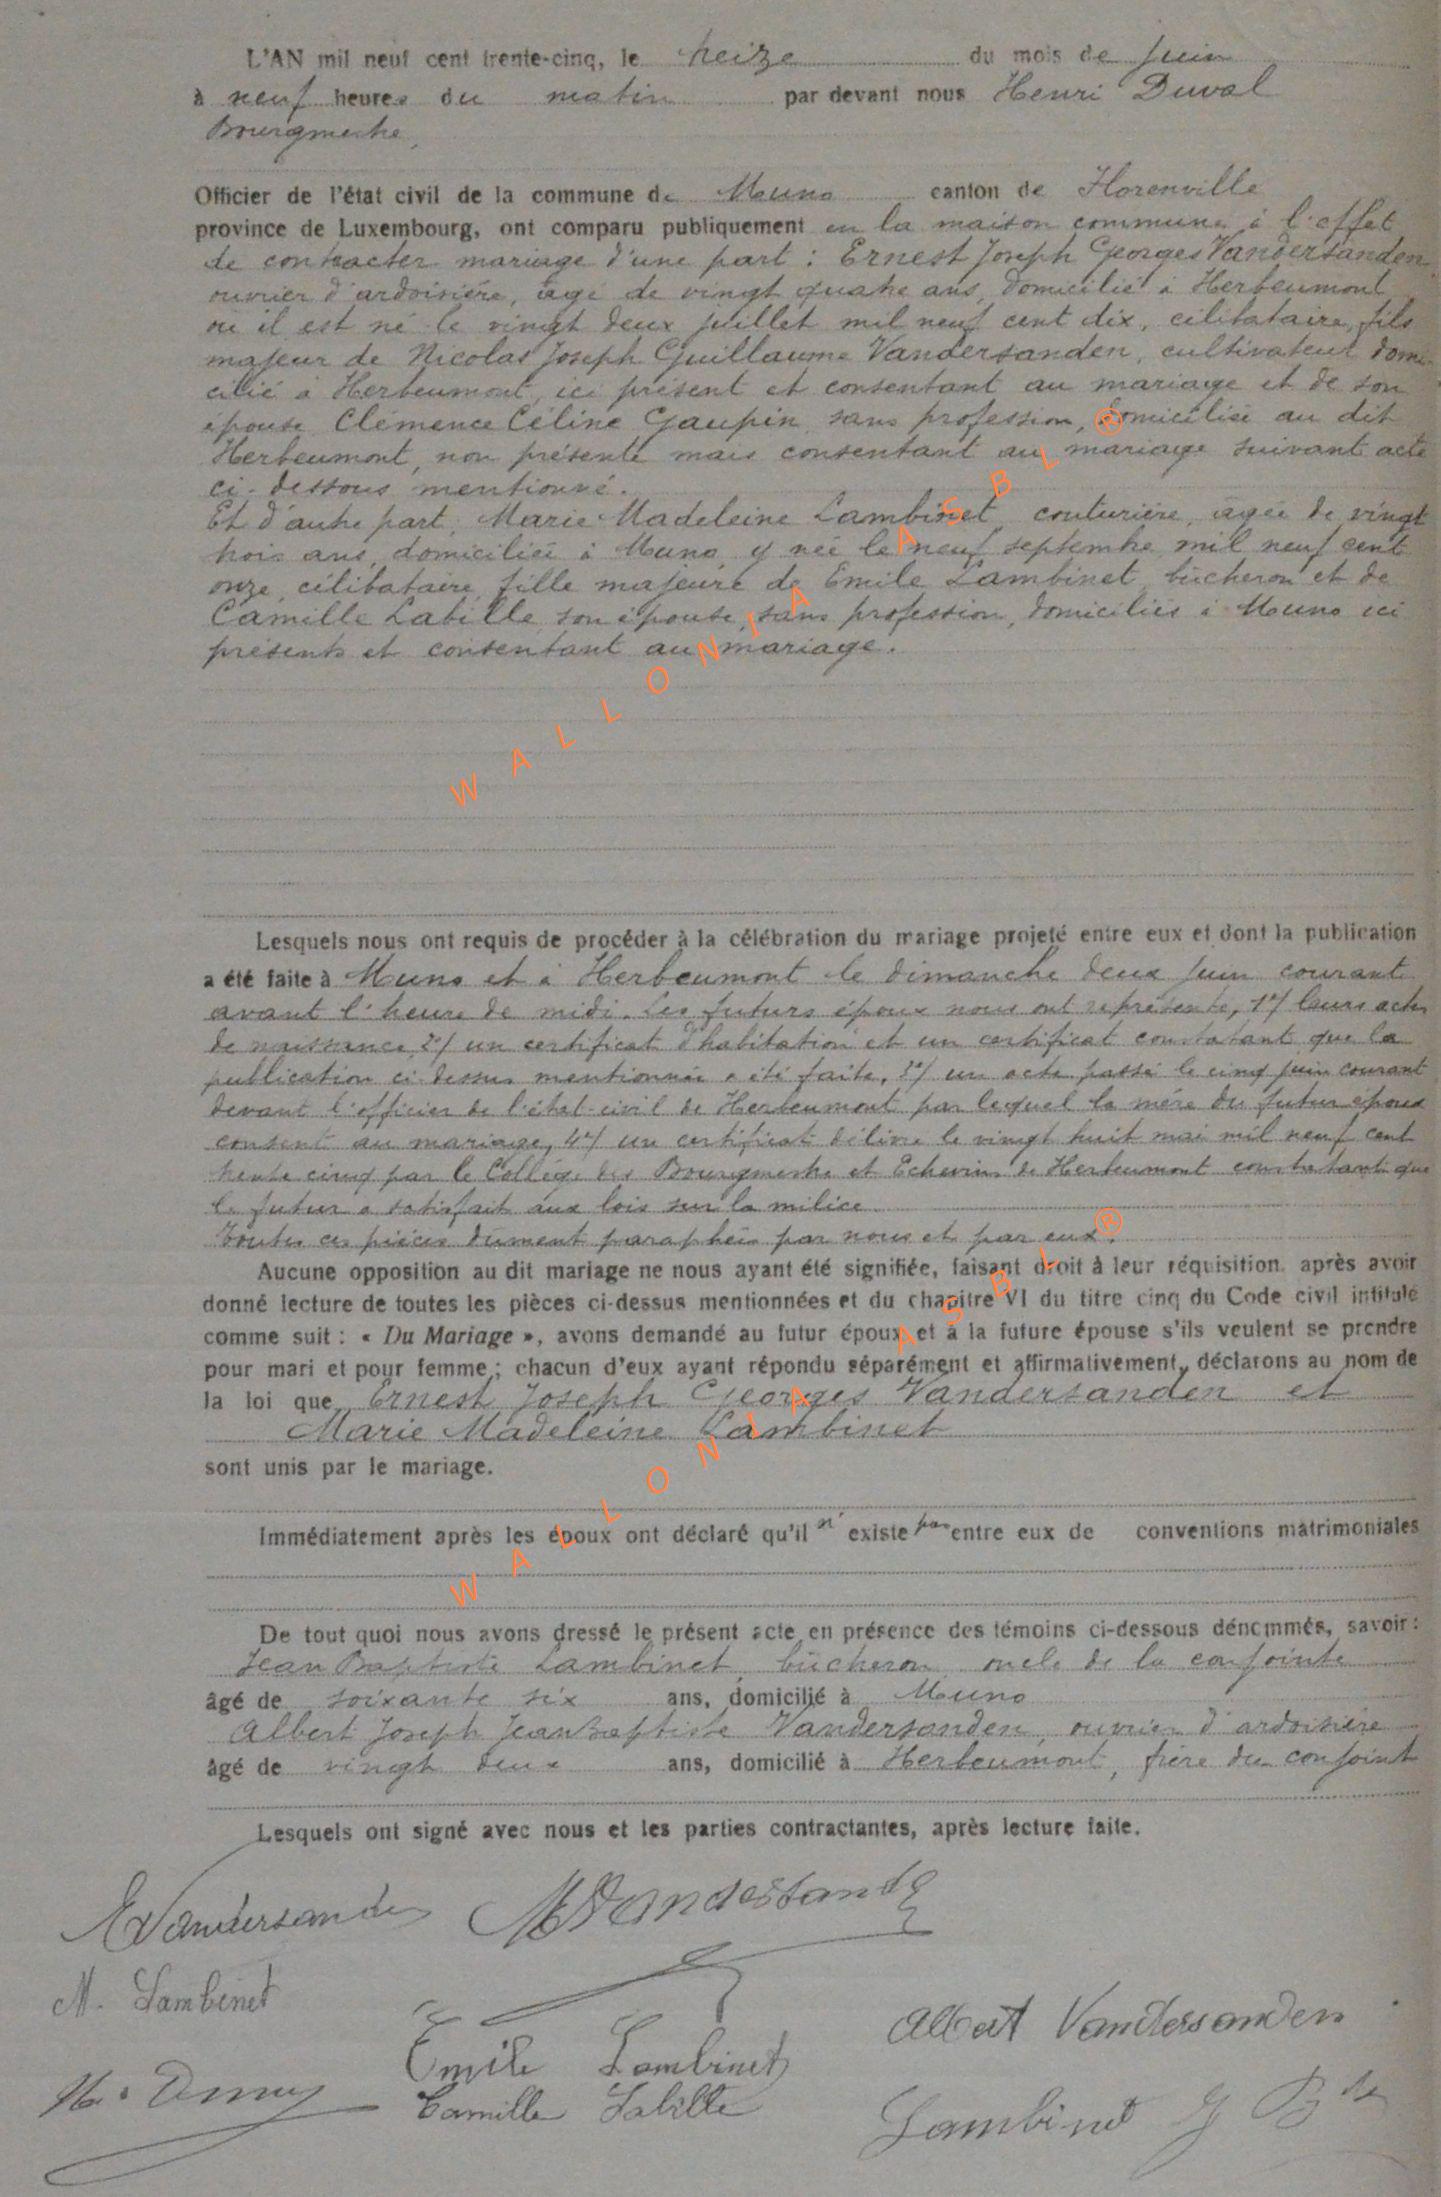 L'AN mil neuf cent trente-cinq, le treize du mois de juin
à neuf heures du matin par devant nous Henri Duval
Bourgmestre,
Officier de l'état civil de la commune de Muno canton de Florenville
province de Luxembourg, ont comparu publiquement en la maison commune à l'effet
de contracter mariage d'une part : Ernest Joseph Georges Vandersanden
ouvrier d'ardoisière, âgé de vingt quatre ans, domicilié à Herbeumont
où il est né le vingt deux juillet mil neuf cent dix, célibataire, fils
majeur de Nicolas Joseph Guillaume Vandersanden, cultivateur domi-
cilié à Herbeumont, ici présent et consentant au mariage et de son
épouse Clémence Céline Gaupin sans profession, domiciliée au dit
Herbeumont, non présente mais consentant au mariage suivant acte
ci-dessous mentionné.
Et d'autre part, Marie Madeleine Lambinet couturière, âgée de vingt
trois ans, domiciliée à Muno, y née le neuf septembre mil neuf cent
onze, célibataire, fille majeure de Emile Lambinet bûcheron et de
Camille Labille son épouse, sans profession, domiciliés à Muno ici
présents et consentant au mariage.
WALLONIA ASBL ®
Lesquels nous ont requis de procéder à la célébration du mariage projeté entre eux et dont la publication
a été faite à Muno et à Herbeumont le dimanche deux juin courant
avant l'heure de midi. Les futurs époux nous ont représenté, 1°/ leurs actes
de naissance, 2°/ un certificat d'habitation et un certificat constatant que la
publication ci-dessus mentionnée a été faite, 3°/ un acte passé le cinq juin courant
devant l'officier de l'état-civil de Herbeumont par lequel la mère du futur époux
consent au mariage, 4°/ un certificat délivré le vingt huit mai mil neuf cent
trente cinq par le Collège des Bourgmestre et Echevins de Herbeumont constatant que
le futur a satisfait aux lois sur la milice
Toutes ces pièces dûment paraphées par nous et par eux.
Aucune opposition au dit mariage ne nous ayant été signifiée, faisant droit à leur réquisition, après avoir
donné lecture de toutes les pièces ci-dessus mentionnées et du chapitre VI du titre cinq du Code civil intitulé
comme suit : « Du Mariage », avons demandé au futur époux et à la future épouse s'ils veulent se prendre
pour mari et pour femme ; chacun d'eux ayant répondu séparément et affirmativement, déclarons au nom de
la loi que Ernest Joseph Georges Vandersanden et
Marie Madeleine Lambinet
sont unis par le mariage.
Immédiatement après les époux ont déclaré qu'il n'existe pas entre eux de conventions matrimoniales
WALLONIA ASBL ®
De tout quoi nous avons dressé le présent acte en présence des témoins ci-dessous dénommés, savoir :
Jean Baptiste Lambinet, bûcheron oncle de la conjointe
âgé de soixante six ans, domicilié à Muno
Albert Joseph Jean Baptiste Vandersanden, ouvrier d'ardoisière
âgé de vingt deux ans, domicilié à Herbeumont, frère du conjoint
Lesquels ont signé avec nous et les parties contractantes, après lecture faite.
EVandersanden
M. Lambinet
Albert Vandersanden
Emile Lambinet
Camille Labille
Lambinet J Bte